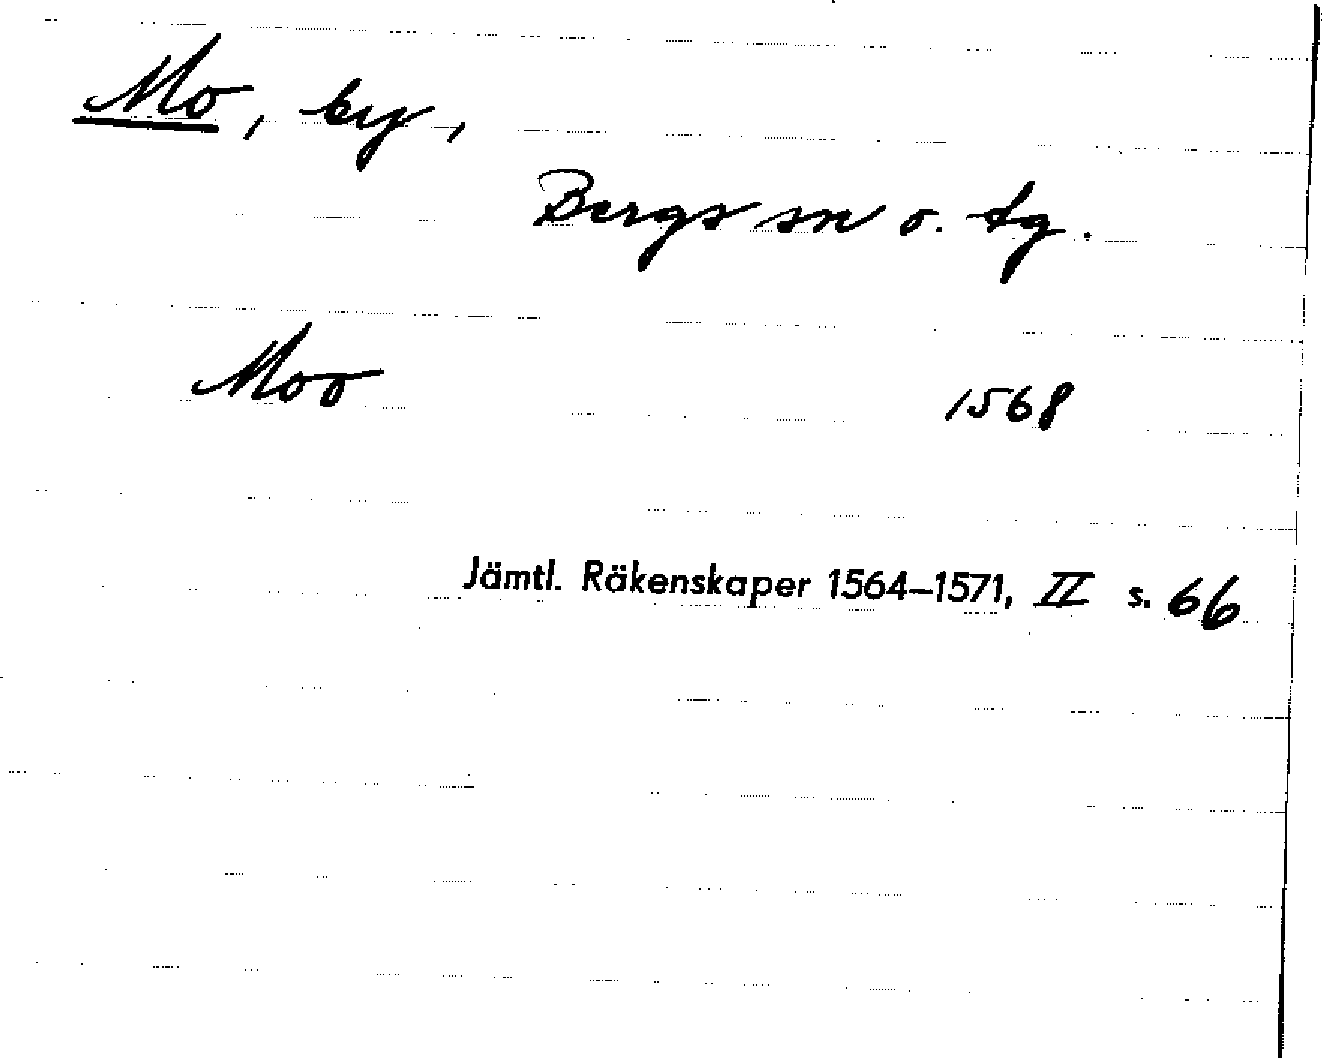 Mo, by,
Bergs sn o. tg.
Moo 1568
Jämtl. Räkenskaper 1564–1571, II s. 66